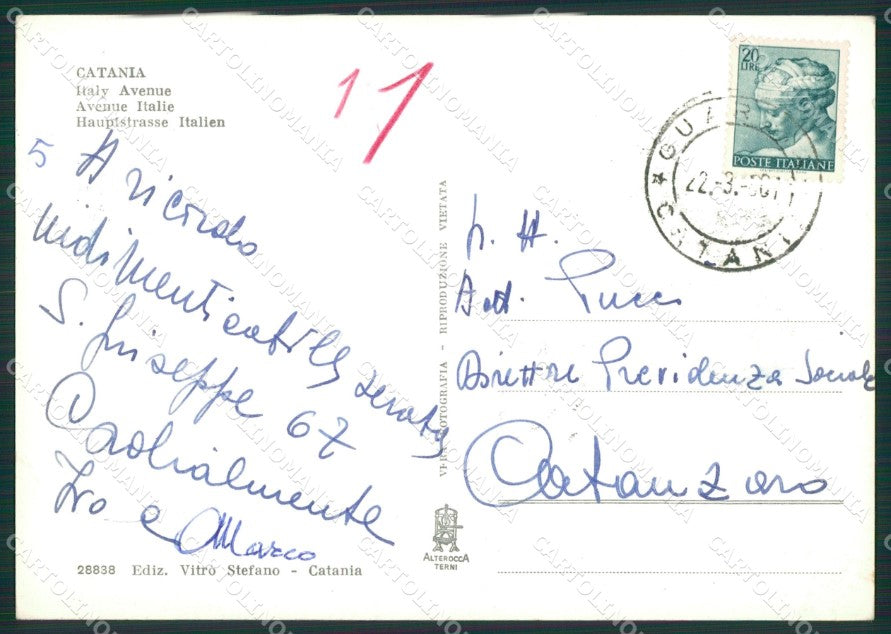 CATANIA
Italy Avenue
Avenue Italie
Hauptstrasse Italien
11
5 A ricordo
indimenticabile serata
S. Giuseppe 67
Cordialmente
e Marco
28838 Ediz. Vitrò Stefano - Catania
VERA FOTOGRAFIA - RIPRODUZIONE VIETATA
ALTEROCCA
TERNI
20
LIRE
POSTE ITALIANE
22.-3.-
Pucci
Direttore Previdenza Sociale
Catanzaro
CARTOLINOMANIA